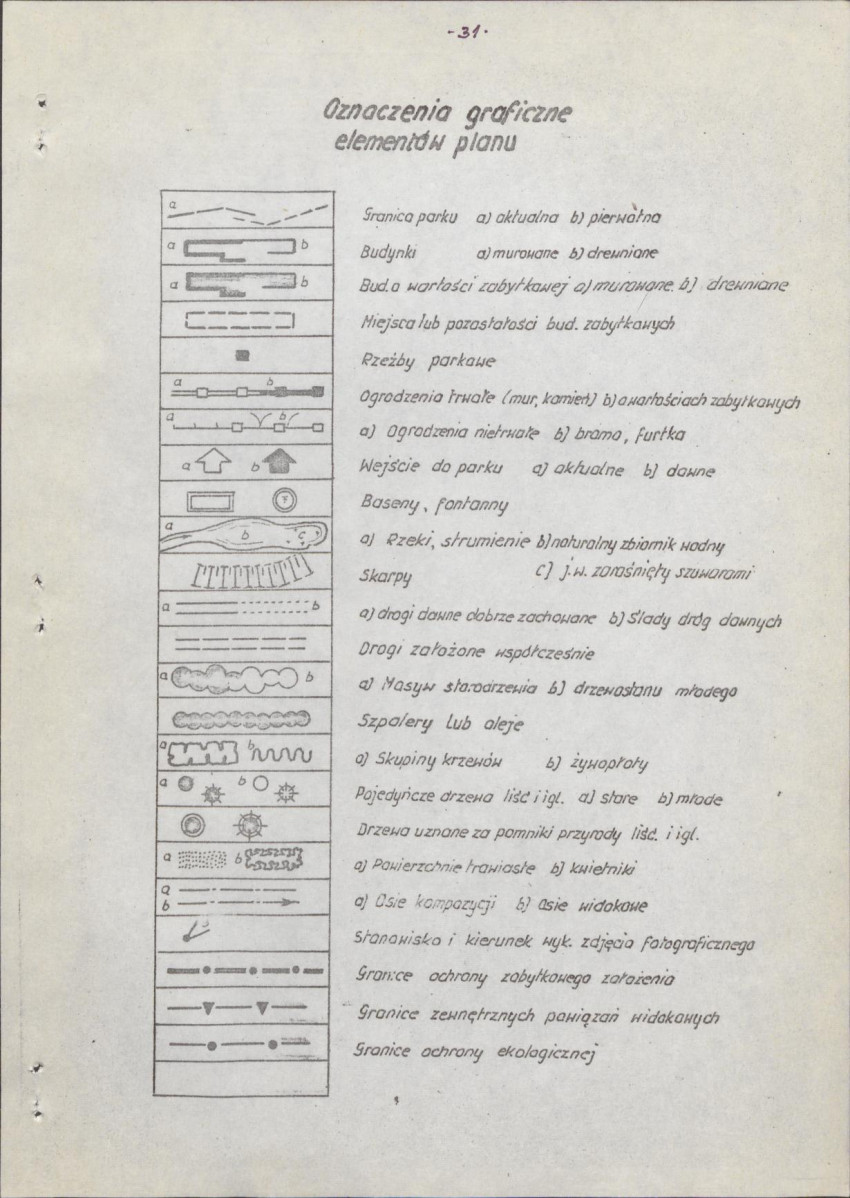 -31-
Oznaczenia graficzne
elementów planu
a
Granica parku a) aktualna b) pierwotna
a b
Budynki a) murowane b) drewniane
a b
Bud. o wartości zabytkowej a) murowane. b) drewniane
Miejsca lub pozostałości bud. zabytkowych
Rzeźby parkowe
a b
Ogrodzenia trwałe (mur, kamień) b) o wartościach zabytkowych
a b
a) Ogrodzenia nietrwałe b) brama, furtka
a b
Wejście do parku a) aktualne b) dawne
F
Baseny, fontanny
a b c
a) Rzeki, strumienie b) naturalny zbiornik wodny
Skarpy c) j.w. zarośnięty szuwarami
a b
a) drogi dawne dobrze zachowane b) Ślady dróg dawnych
Drogi założone współcześnie
a b
a) Masyw starodrzewia b) drzewostanu młodego
Szpalery lub aleje
a b
a) Skupiny krzewów b) żywopłoty
a b
Pojedyńcze drzewa liść i igl. a) stare b) młode
Drzewa uznane za pomniki przyrody liść. i igl.
a b
a) Powierzchnie trawiaste b) kwietniki
a
b
a) Osie kompozycji b) Osie widokowe
Stanowisko i kierunek wyk. zdjęcia fotograficznego
Granice ochrony zabytkowego założenia
Granice zewnętrznych powiązań widokowych
Granice ochrony ekologicznej